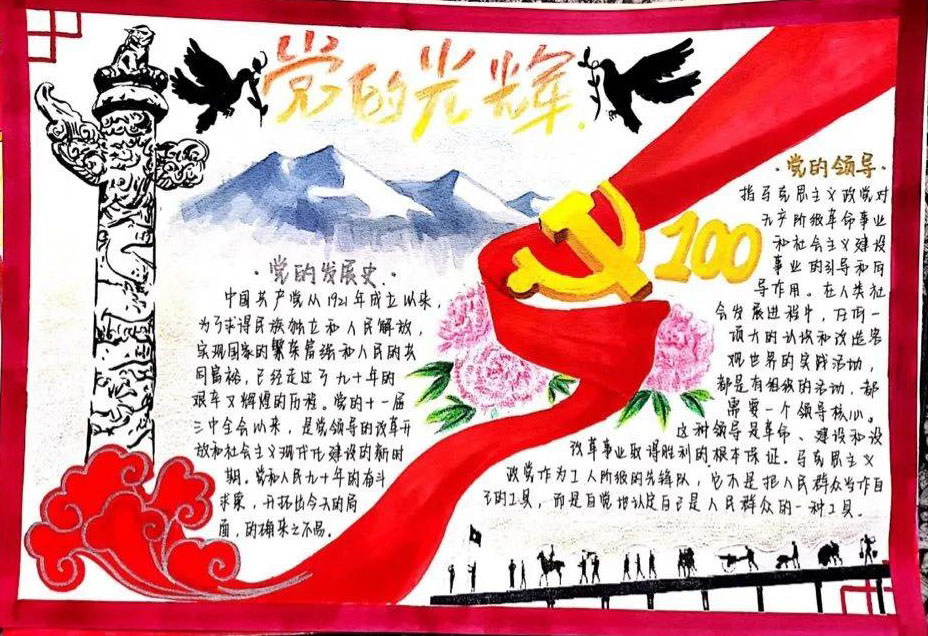 党的光辉.
·党的发展史·
中国共产党从1921年成立以来,
为了求得民族独立和人民解放,
实现国家的繁荣富强和人民的共
同富裕,已经走过了九十年的
艰辛又辉煌的历程。党的十一届
三中全会以来,是党领导的改革开
放和社会主义现代化建设的新时
期。党和人民九十年的奋斗
求索,开拓出今天的局
面,的确来之不易。
100
·党的领导·
指马克思主义政党对
无产阶级革命事业
和社会主义建设
事业的引导和向
导作用。在人类社
会发展进程中,任何一
项大的认识和改造客
观世界的实践活动,
都是有组织的活动,都
需要一个领导核心。
这种领导是革命、建设和设
改革事业取得胜利的根本保证。马克思主义
政党作为工人阶级的先锋队,它不是把人民群众当作自
己的工具,而是自觉地认定自己是人民群众的一种工具。